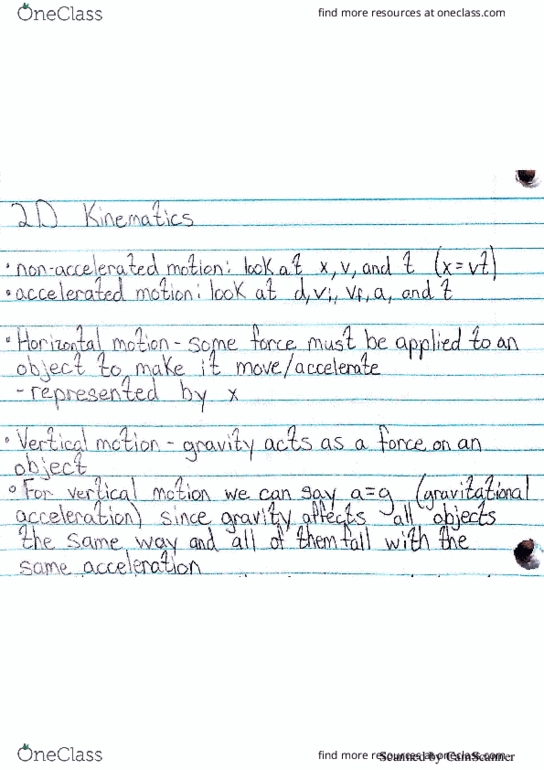 OneClass
find more resources at oneclass.com
2D Kinematics
• non-accelerated motion: look at x, v, and t (x=vt)
• accelerated motion: look at d, vi, vf, a, and t
• Horizontal motion - some force must be applied to an
object to make it move/accelerate
- represented by x
• Vertical motion - gravity acts as a force on an
object
• For vertical motion we can say a=g (gravitational
acceleration) since gravity affects all objects
the same way and all of them fall with the
same acceleration
OneClass
find more resources at oneclass.com
Scanned by CamScanner